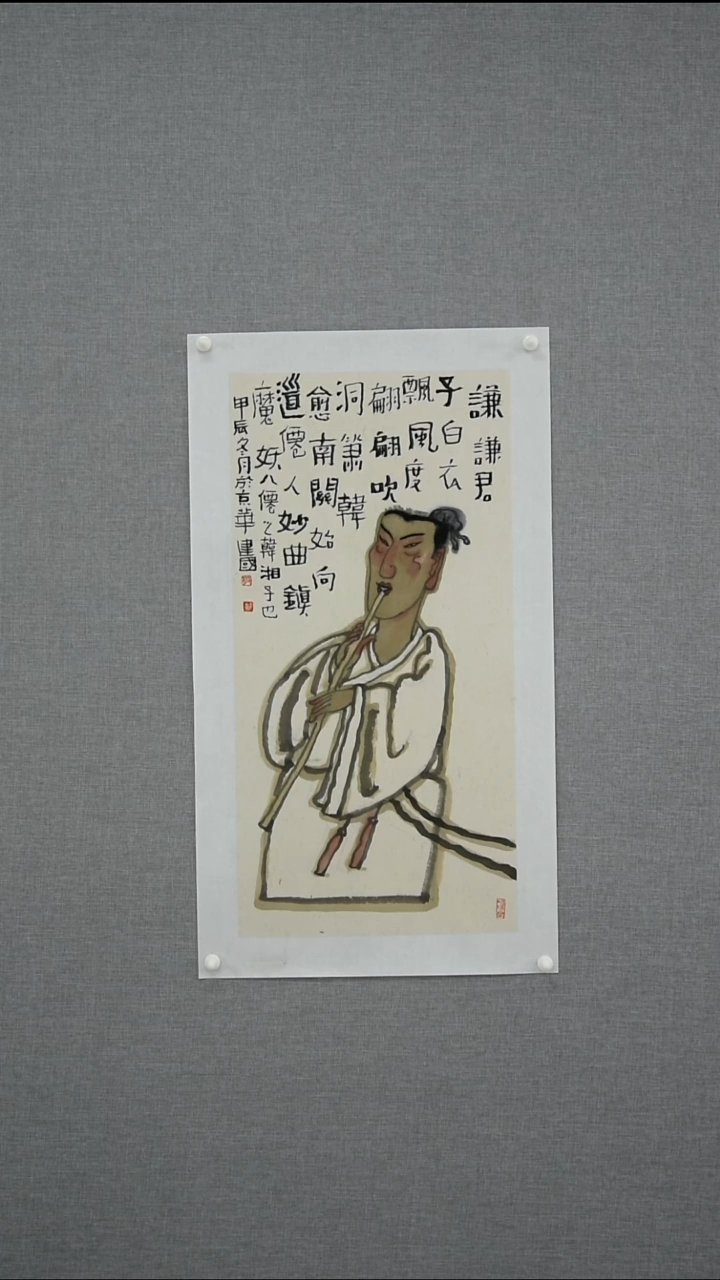 謙謙君
子白衣
飄風度
翩翩吹
洞簫韓
愈南關始向
道僊人妙曲鎮
魔妖八僊之韓湘子也
甲辰冬月於京華建國